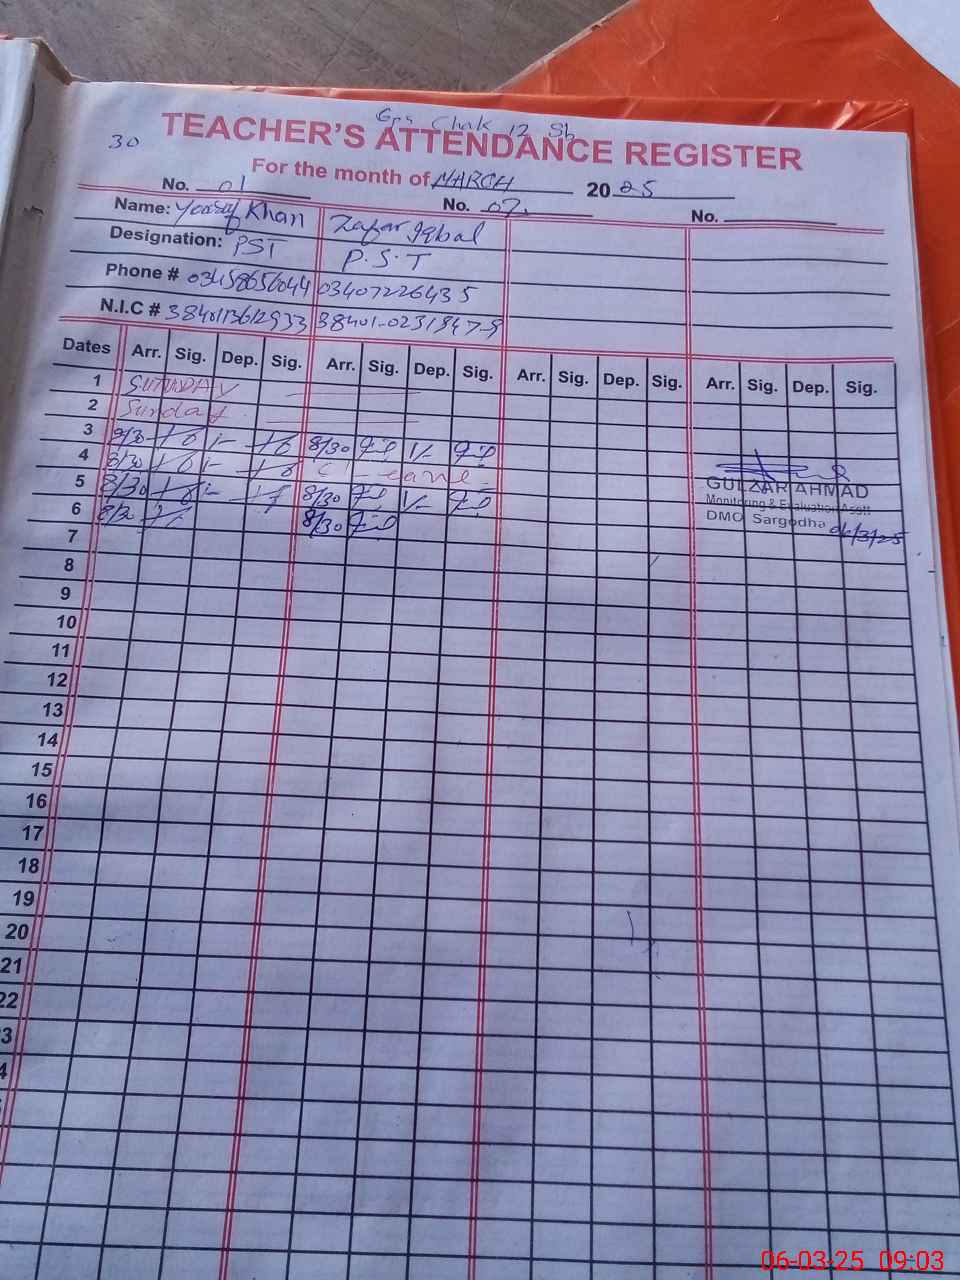 Gps Chak 12 Sb
30
TEACHER'S ATTENDANCE REGISTER
For the month of MARCH 2025
No. 01 No. 02. No.
Name: Yousaf Khan Zafar Iqbal
Designation: PST P.S.T
Phone # 03458656044 03407226435
N.I.C # 3840113612933 38401-0231847-9
Dates Arr. Sig. Dep. Sig. Arr. Sig. Dep. Sig. Arr. Sig. Dep. Sig. Arr. Sig. Dep. Sig.
1 SUNDAY
2 Sunday
3 8/30 1- 8/30 1/-
4 8/30 1- C leave
5 8/30 1- 8/30 1/-
6 8/30 8/30
GULZAR AHMAD
Monitoring & Evaluation Asstt
DMO Sargodha 06/3/25
7
8
9
10
11
12
13
14
15
16
17
18
19
20
21
22
3
4
06-03-25 09:03